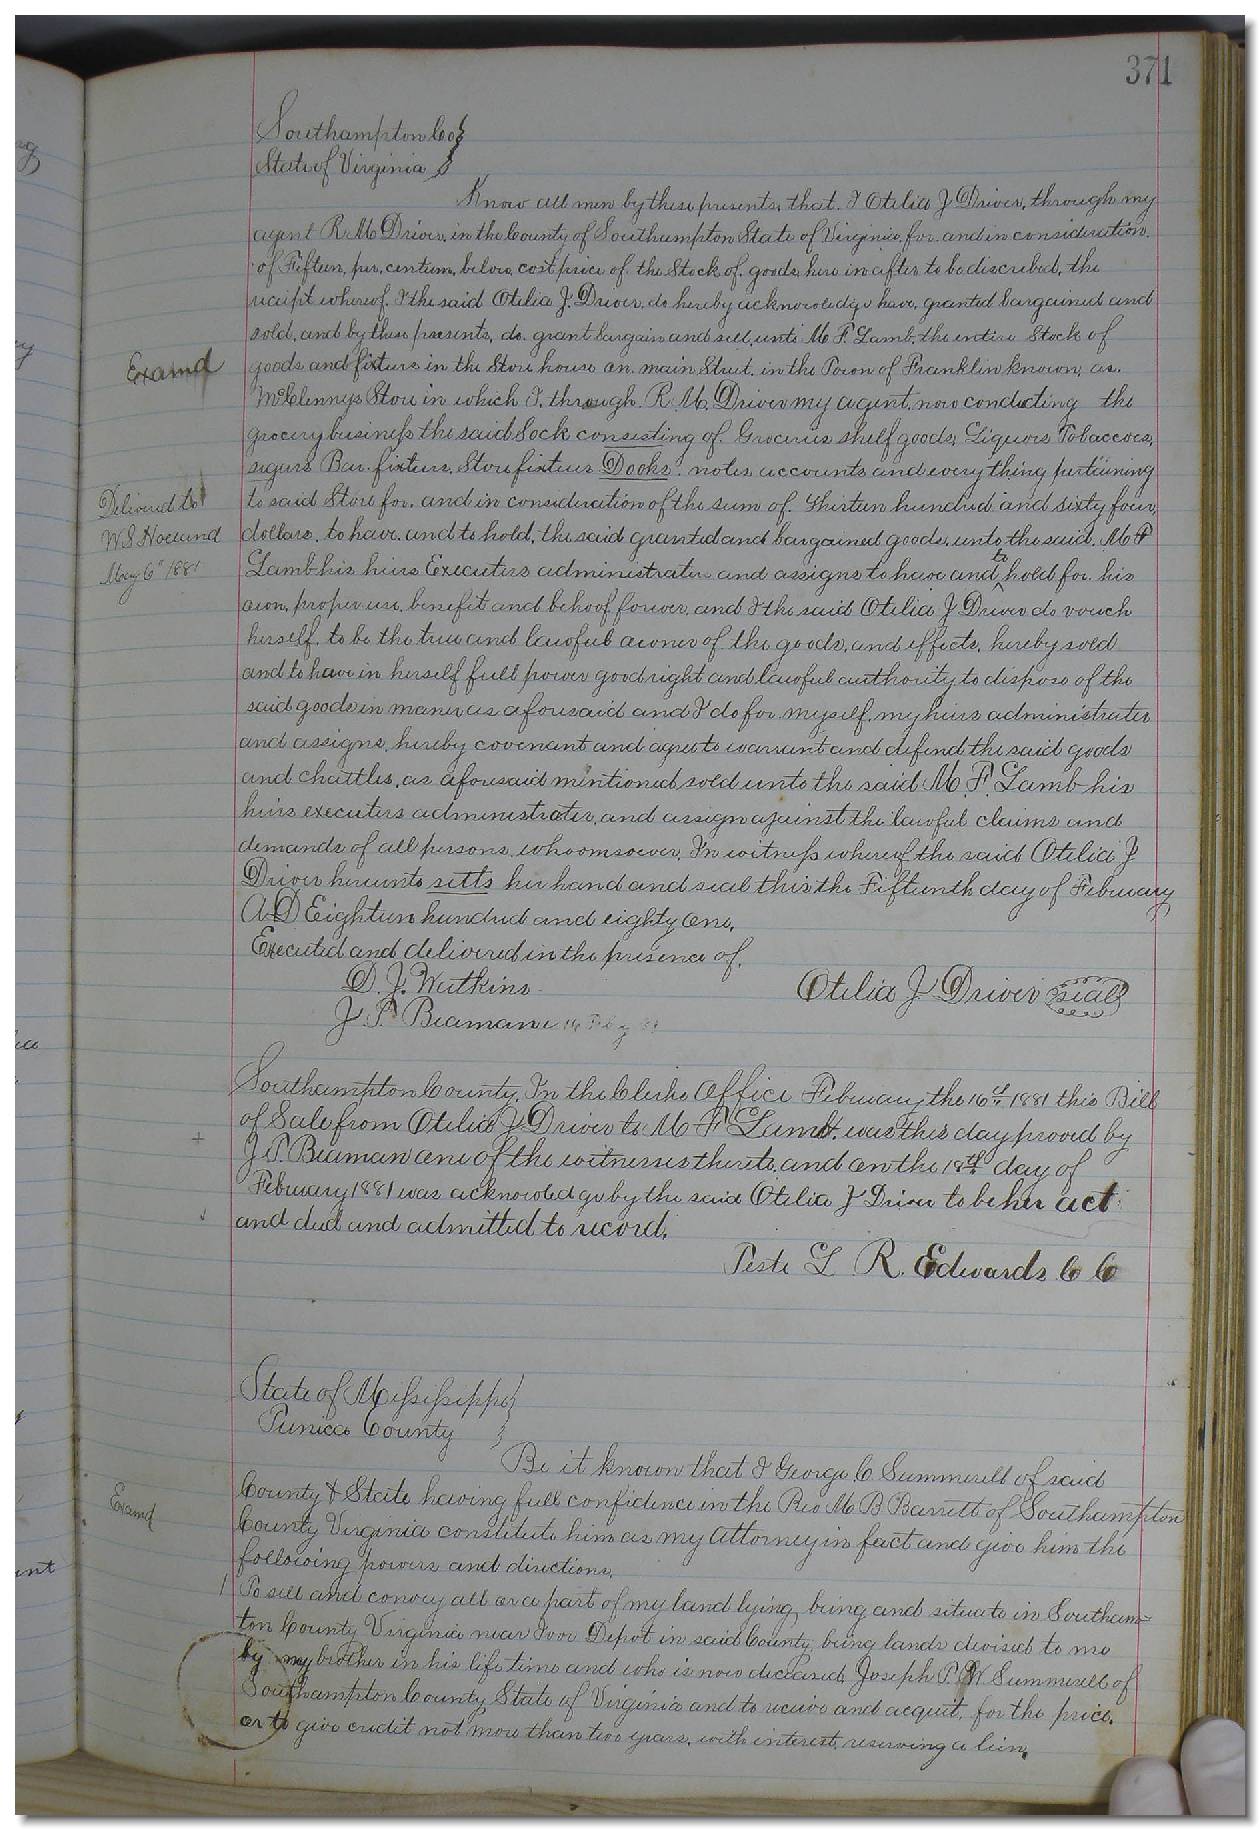 371
Southampton Co }
State of Virginia }
Know all men by these presents, that I Otelia J Driver, through my
agent R. M. Driver, in the County of Southampton State of Virginia, for and in consideration
of Fifteen, per, centum, below, cost price of the Stock of goods here in after to be discribed, the
receipt whereof, I the said Otelia J. Driver, do hereby acknowledge have, granted bargained and
sold, and by these presents, do grant bargain and sell, unto M. F. Lamb, the entire Stock of
Examd
goods and fixture in the Store house on main Street, in the Town of Franklin known, as
McClennys Store in which I, through R. M. Driver my agent, now conducting the
grocery business the said Sock consesting of Groceries shelf goods, Liquors Tobaccoes,
segurs Bar fixturs, Store fixturs Dooks. notes, accounts and everything pertaining
Delivered to
to said Store for, and in consideration of the sum of Thirteen hundred and sixty four,
W. S. Holland
dollars, to have, and to hold, the said granted and bargained goods, unto the said M F
May 6th 1881
Lamb his heirs Executers administrators and assigns to have and ^to hold for his
own, proper use, benefit and behoof forever, and I the said Otelia J Driver do vouch
herself, to be the true and lawful aconer of the goods, and effects, hereby sold
and to have in herself full power good right and lawful authority, to dispose of the
said goods in maner as aforesaid and I do for myself, my heirs administrater
and assigns, hereby covenant and agree to warrant and defend the said goods
and chattles, as aforesaid mentioned sold unto the said M. F. Lamb his
heirs executers administrater, and assign against the lawful claims and
demands of all persons, whoomsoever, In witness whereof the said Otelia J
Driver hereunto setts her hand and seal this the Fifteenth day of February
A. D Eighteen hundred and eighty one,
Executed and delivered in the presence of,
D. J. Watkins
Otelia J Driver seal
J P. Beaman
Southampton County, In the Clerks Office February the 16th 1881 this Bill
of Sale from Otelia J Driver to M F Lamb, was this day proved by
J. P. Beaman one of the witnesses thereto, and on the 18th day of
February 1881 was acknowledge by the said Otelia J Driver to be her act
and deed and admitted to record,
Teste L R. Edwards C C
State of Mississippi }
Tunica County }
Be it known that I George C Summerell of said
Examd
County & State having full confidence in the Rev M B Barrett of Southampton
County Virginia constitute him as my Attorney in fact and give him the
following powers and directions,
1 To sell and convey all or a part of my land lying, being and situate in Southam=
ton County Virginia near Ivor Depot in said County, being lands devised to me
by my brother in his life time and who is now deceased, Joseph P. W Summerell of
Southampton County State of Virginia and to receive and acquit, for the price,
or to give credit not more than two years, with interest, reserving a lein,